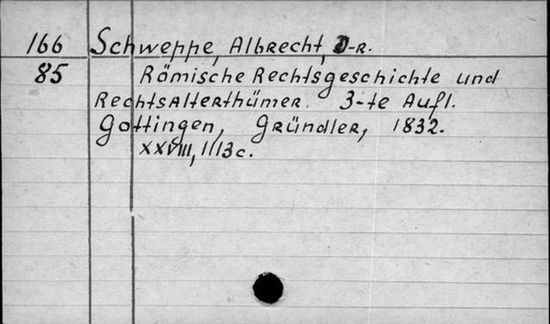 166 Schweppe, Albrecht, D-r.
85 Römische Rechtsgeschichte und
Rechtsalterthümer. 3-te Aufl.
Gottingen, Gründler, 1832.
XXVIII, 1113 c.